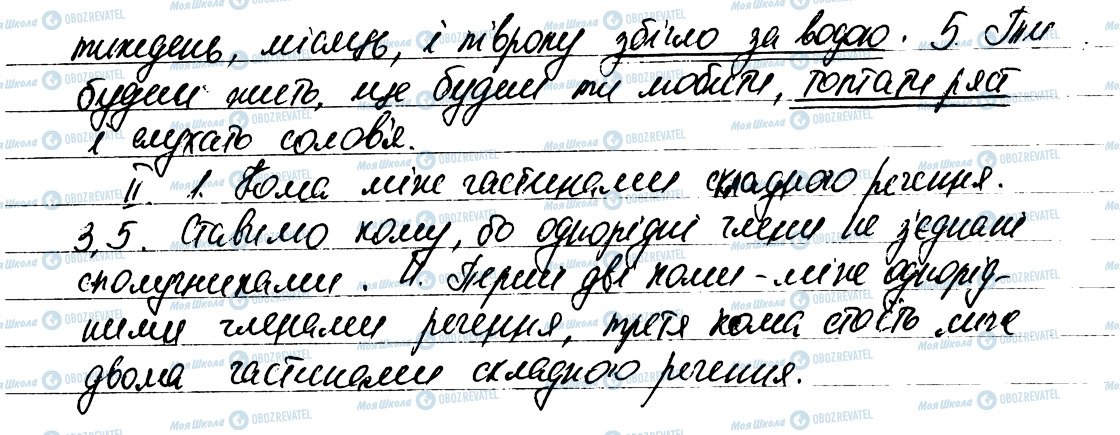 тиждень, місяць, і півроку збігло за водою. 5. Ти
будеш жить, ще будеш ти любити, топтати ряст
і слухать солов'я.
II. 1. Кома між частинами складного речення.
3, 5. Ставимо кому, бо однорідні члени не з'єднані
сполучниками. 4. Перші дві коми – між однорід-
ними членами речення, третя кома стоїть між
двома частинами складного речення.